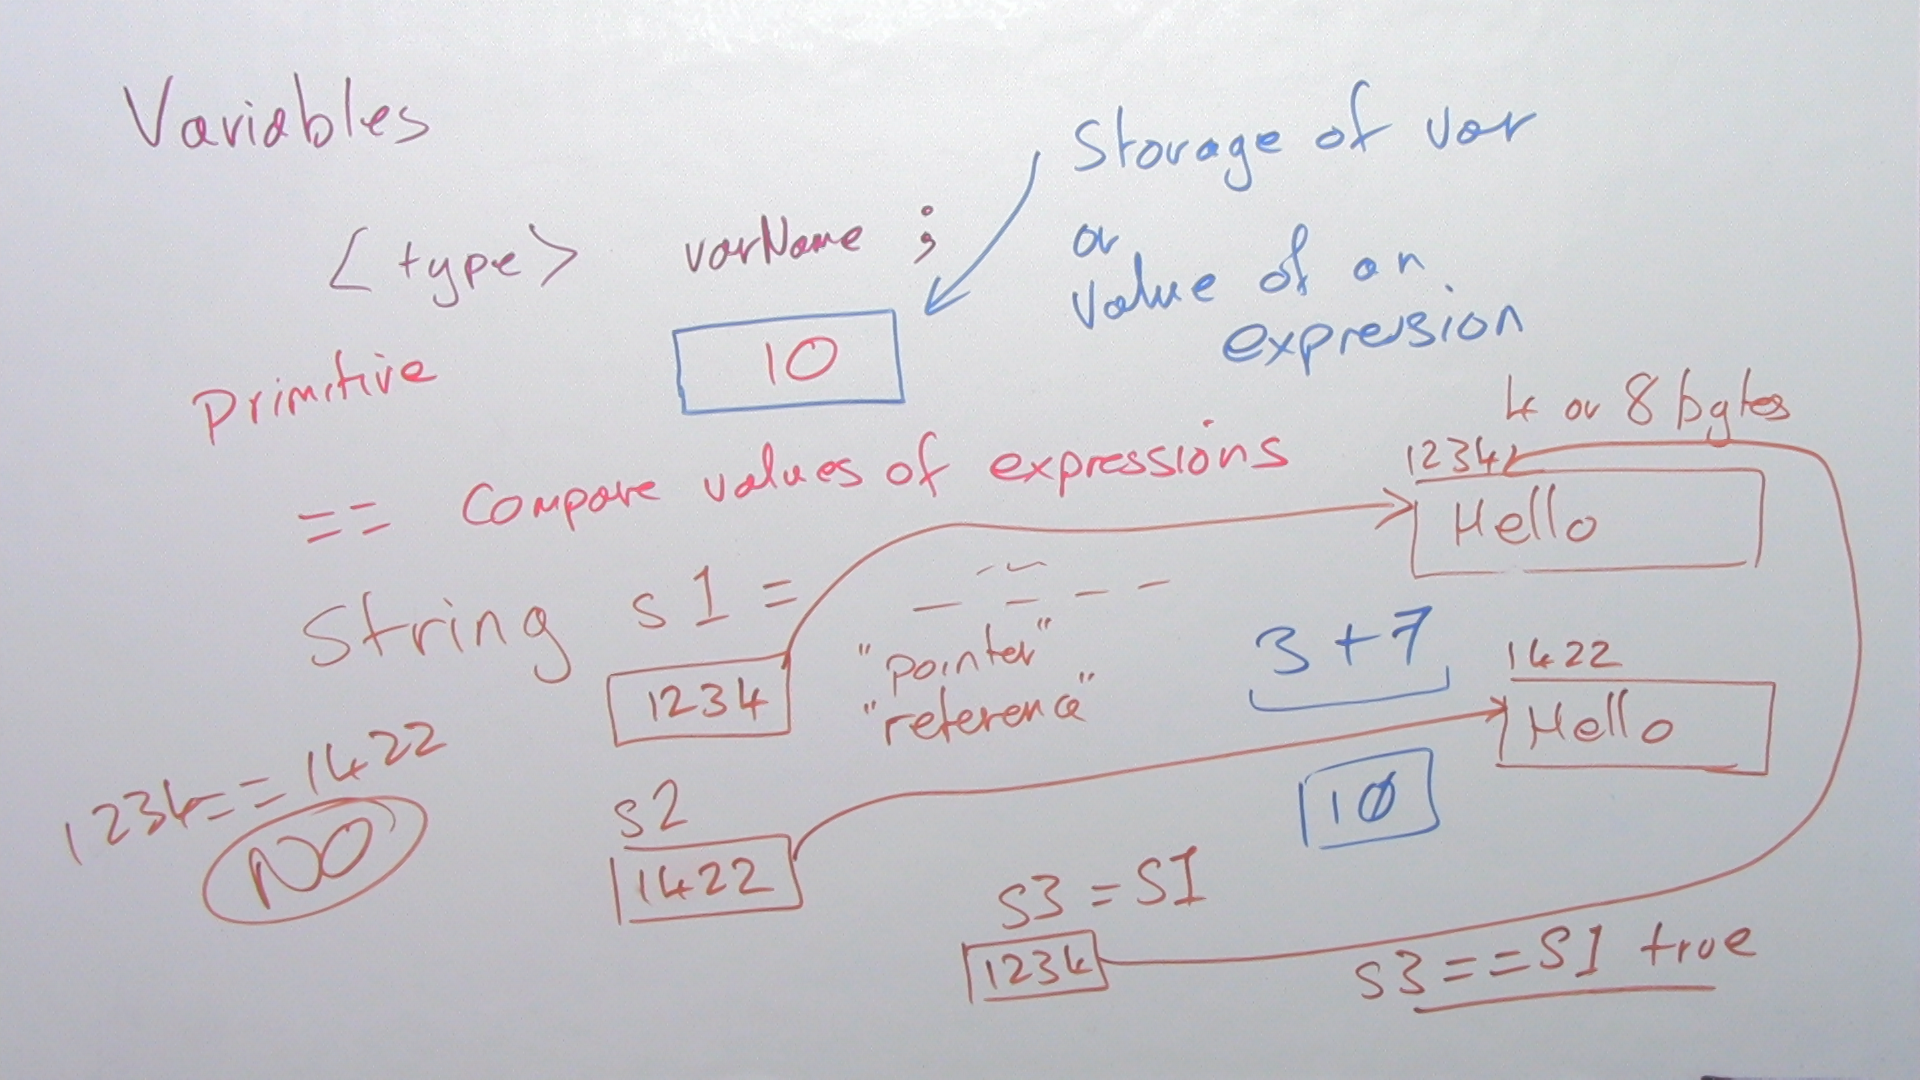 Variables
Storage of var
or
value of an
expression
<type> varName ;
10
Primitive
4 or 8 bytes
== Compare values of expressions
1234
Hello
String s1 = _ _ _ _
"pointer"
"reference"
1234
3 + 7
1422
Hello
10
1234 == 1422
NO
s2
1422
S3 = S1
1234
S3 == S1 true